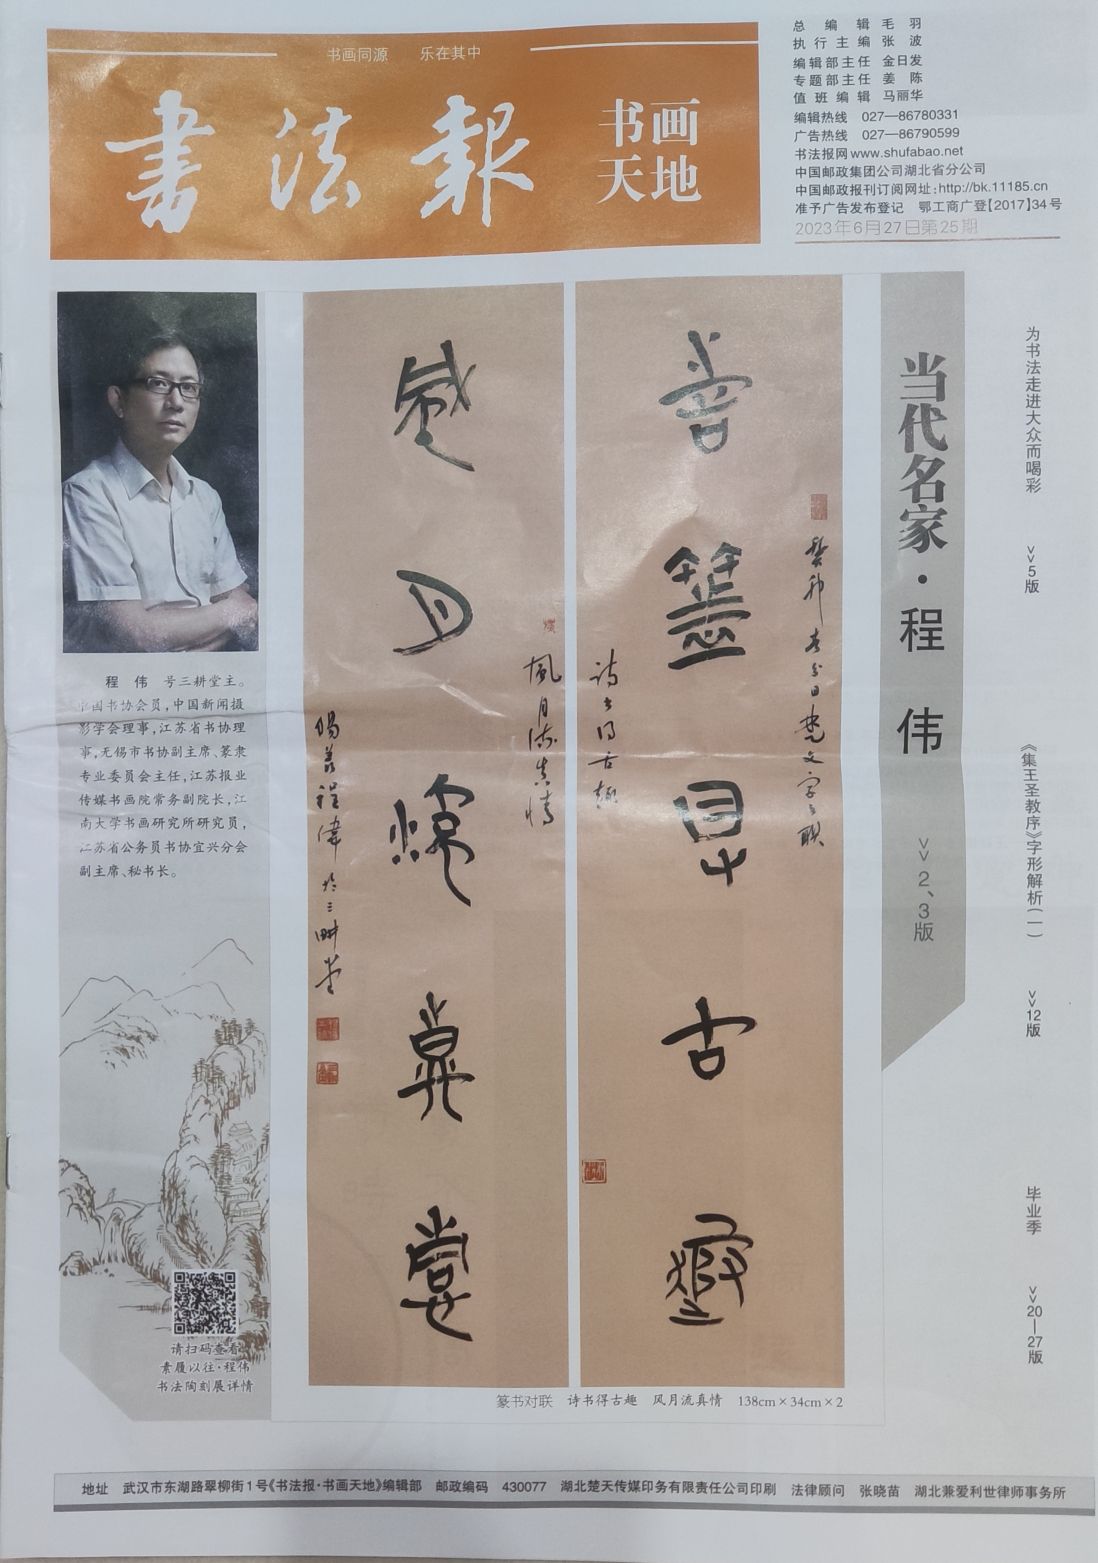 书画同源 乐在其中
書法報
书画
天地
总编辑 毛羽
执行主编 张波
编辑部主任 金日发
专题部主任 姜陈
值班编辑 马丽华
编辑热线 027—86780331
广告热线 027—86790599
书法报网 www.shufabao.net
中国邮政集团公司湖北省分公司
中国邮政报刊订阅网址:http://bk.11185.cn
准予广告发布登记 鄂工商广登【2017】34号
2023年6月27日第25期
程 伟 号三耕堂主。
中国书协会员,中国新闻摄
影学会理事,江苏省书协理
事,无锡市书协副主席、篆隶
专业委员会主任,江苏报业
传媒书画院常务副院长,江
南大学书画研究所研究员,
江苏省公务员书协宜兴分会
副主席、秘书长。
请扫码查看
素履以往·程伟
书法陶刻展详情
癸卯春分日楚文字之联
詩書得古趣
詩書得古趣
風月流真情
風月流真情
陽羨程偉於三畊堂
篆书对联 诗书得古趣 风月流真情 138cm×34cm×2
当代名家·程伟
>>2、3版
为书法走进大众而喝彩 >>5版
《集王圣教序》字形解析(一) >>12版
毕业季 >>20—27版
地址 武汉市东湖路翠柳街1号《书法报·书画天地》编辑部 邮政编码 430077 湖北楚天传媒印务有限责任公司印刷 法律顾问 张晓苗 湖北兼爱利世律师事务所